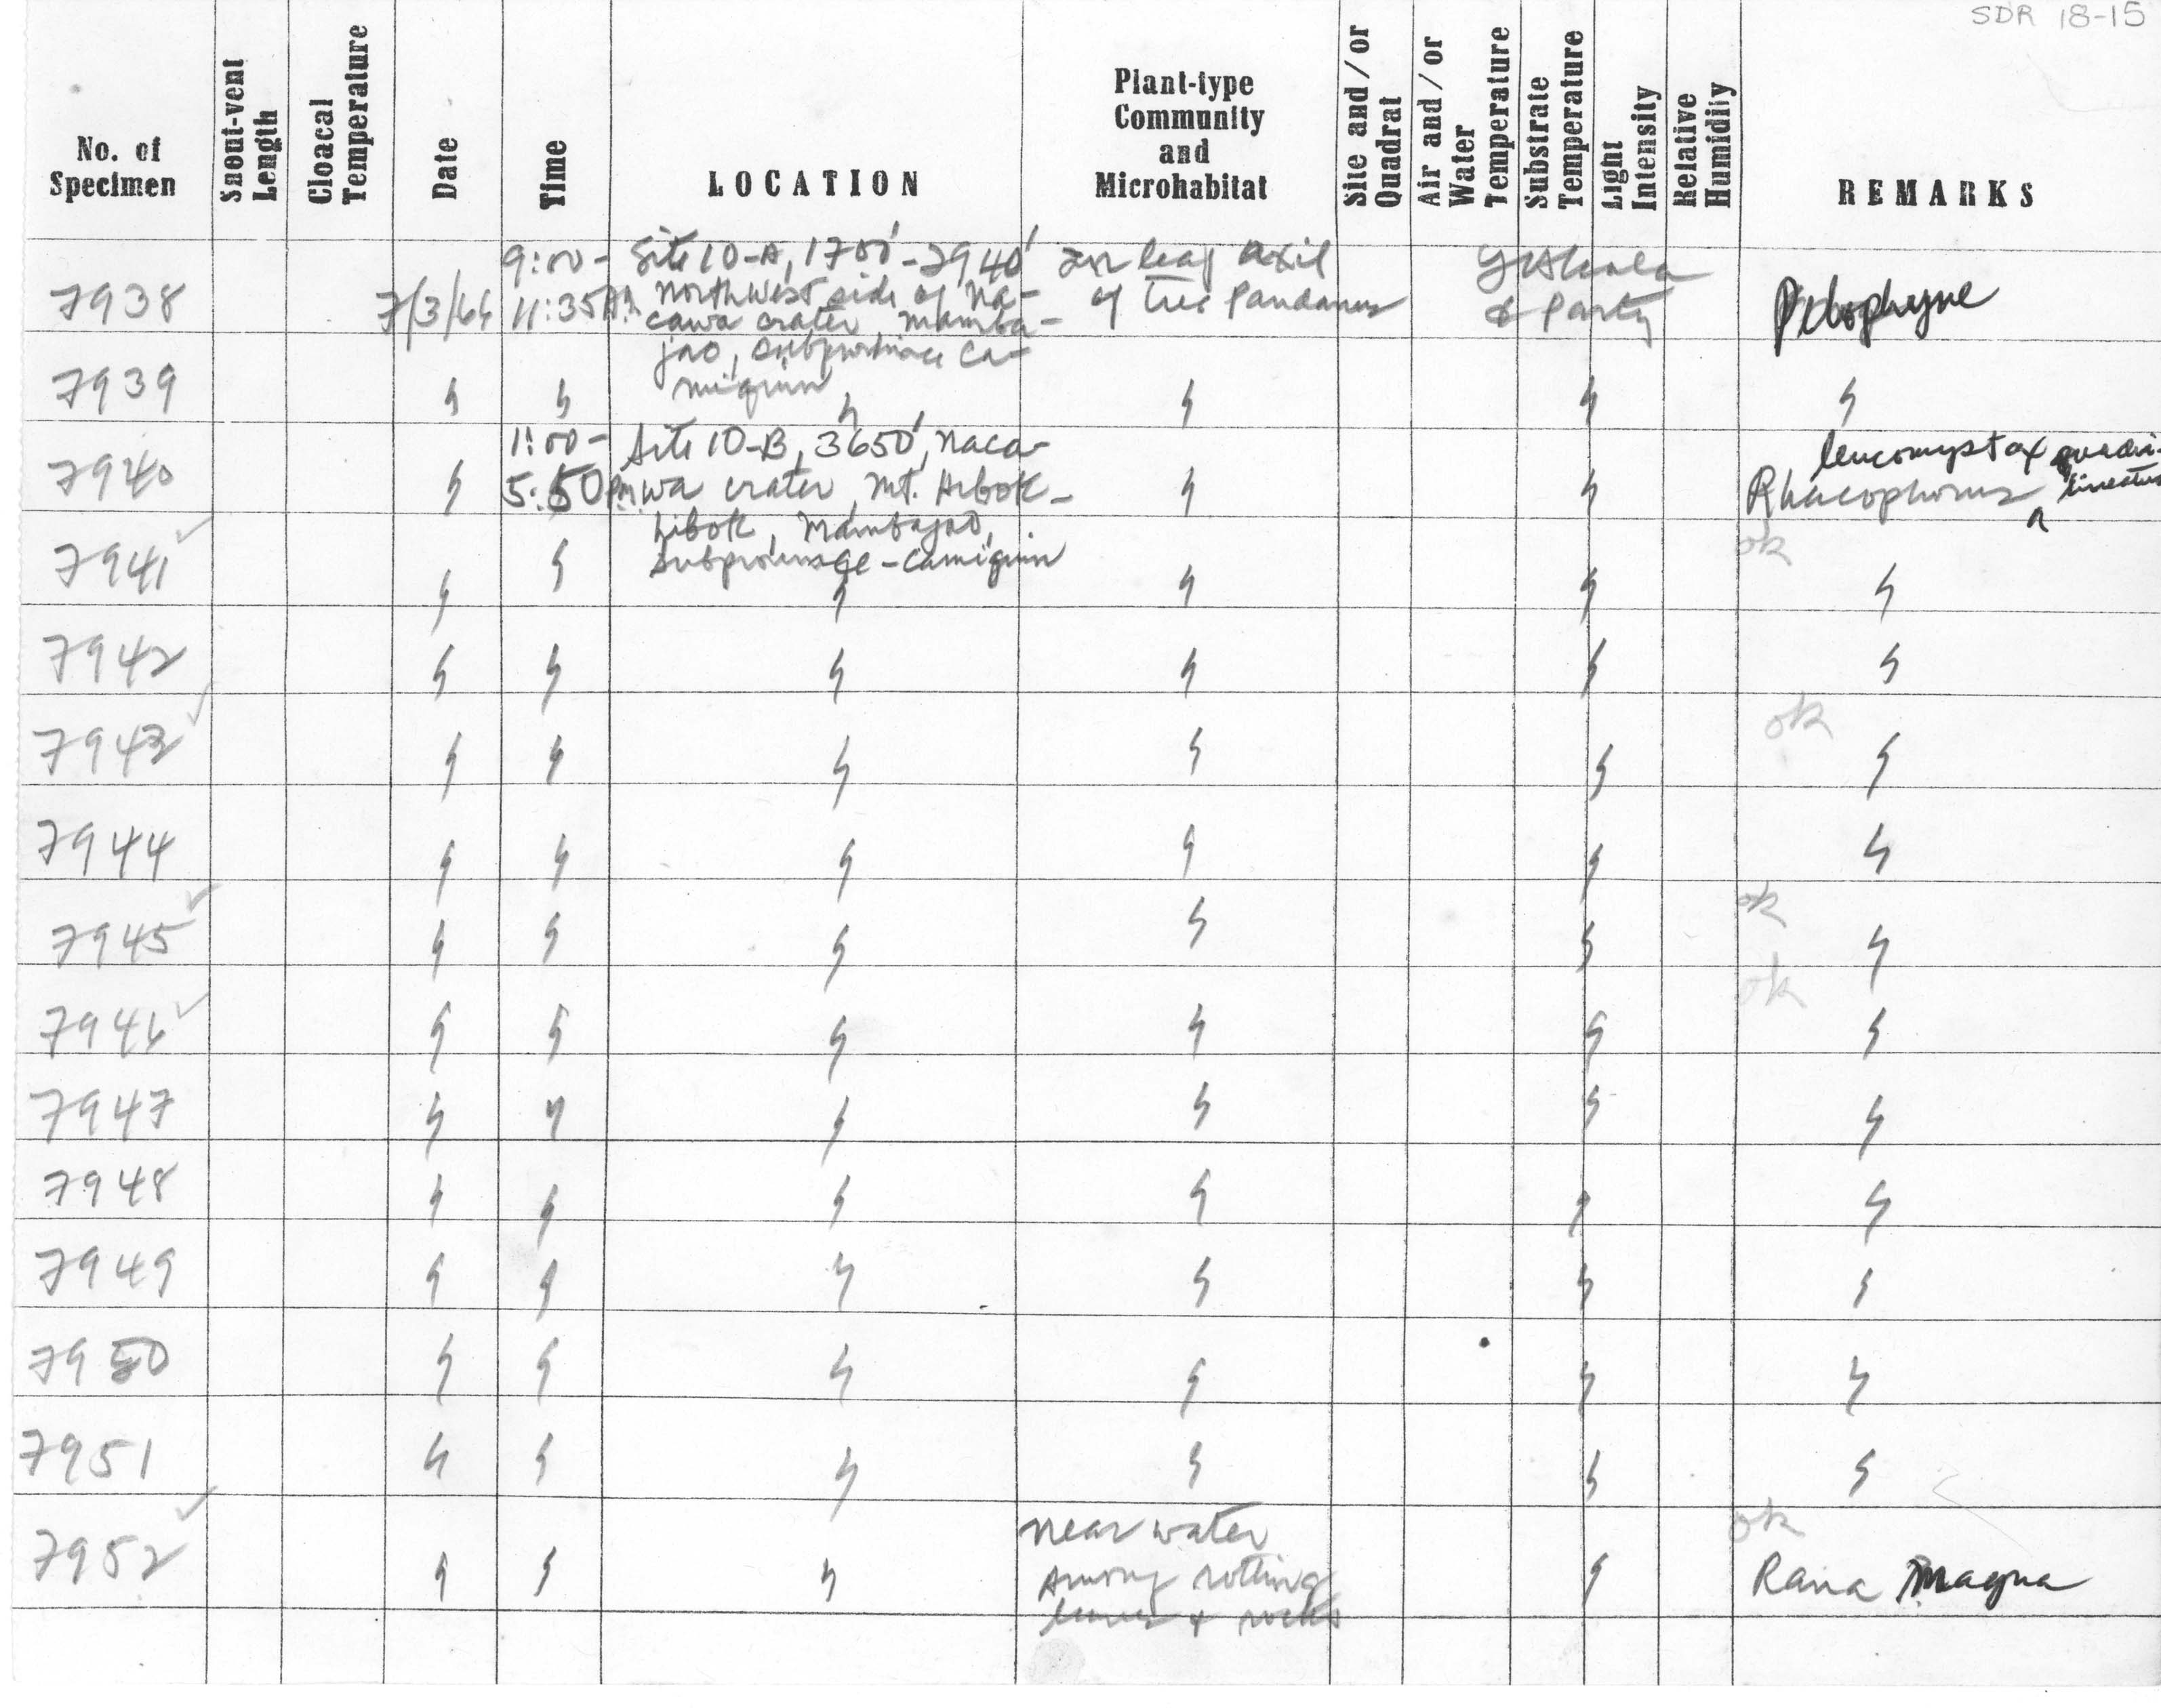 SDR 18-15
No. of Specimen | Snout-vent Length | Cloacal Temperature | Date | Time | LOCATION | Plant-type Community and Microhabitat | Site and/or Quadrat | Air and/or Water Temperature | Substrate Temperature | Light Intensity | Relative Humidity | REMARKS
7938 | 7/3/66 | 9:00- 11:35 | Site 10-A, 1700'-2940' Northwest side of Nacawa crater, Mambajao, subprovince Camiguin | In leaf axil of tree Pandanus | & Party
7939 | 〃 | 〃 | 〃 | 〃 | 〃 | 〃
7940 | 〃 | 1:00- 5:50 P.M. | Site 10-B, 3650', Nacawa crater, Mt. Hibok-hibok, Mambajao, Subprovince-Camiguin | 〃 | 〃 | Rhacophorus leucomystax quadrilineatus
7941 ✓ | 〃 | 〃 | 〃 | 〃 | 〃 | ok 〃
7942 | 〃 | 〃 | 〃 | 〃 | 〃 | 〃
7943 ✓ | 〃 | 〃 | 〃 | 〃 | 〃 | ok 〃
7944 | 〃 | 〃 | 〃 | 〃 | 〃 | 〃
7945 ✓ | 〃 | 〃 | 〃 | 〃 | 〃 | ok 〃
7946 ✓ | 〃 | 〃 | 〃 | 〃 | 〃 | ok 〃
7947 | 〃 | 〃 | 〃 | 〃 | 〃 | 〃
7948 | 〃 | 〃 | 〃 | 〃 | 〃 | 〃
7949 | 〃 | 〃 | 〃 | 〃 | 〃 | 〃
7950 | 〃 | 〃 | 〃 | 〃 | 〃 | 〃
7951 | 〃 | 〃 | 〃 | 〃 | 〃 | 〃
7952 ✓ | 〃 | 〃 | 〃 | near water among rotting leaves & rocks | 〃 | ok Rana magna